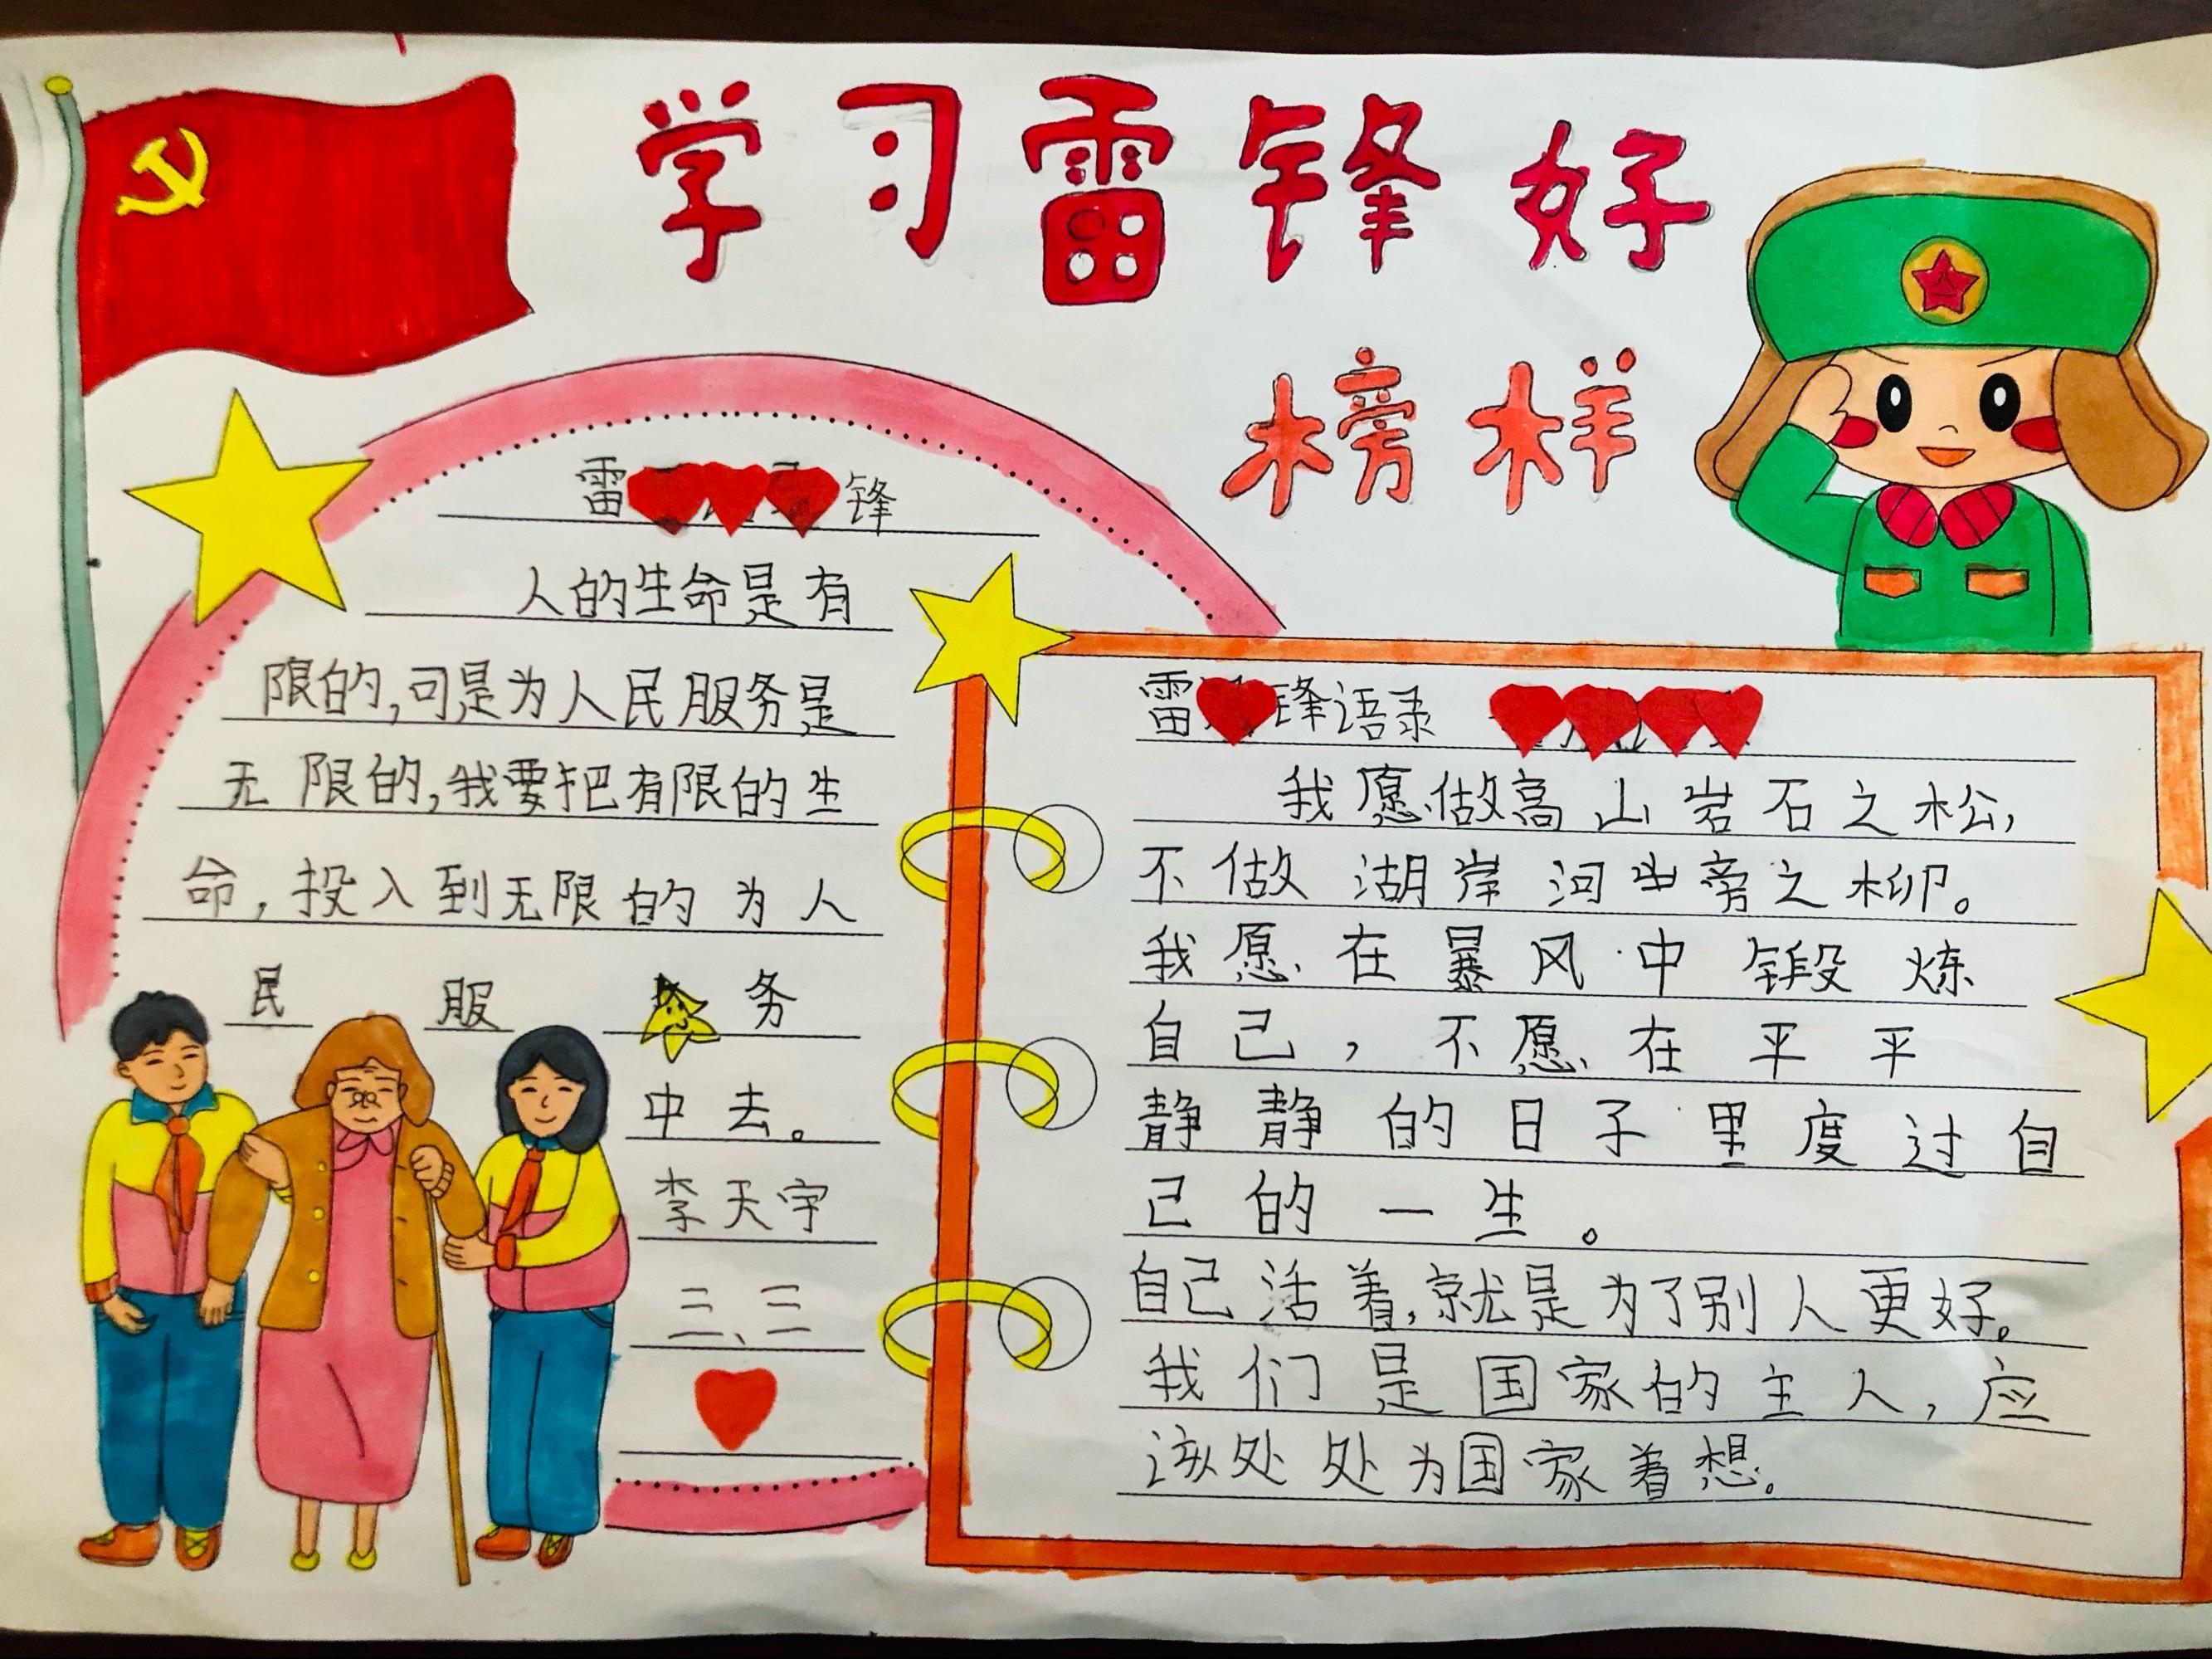 学习雷锋好
榜样
雷锋
人的生命是有
限的,可是为人民服务是
无限的,我要把有限的生
命,投入到无限的为人
民服务
中去。
李天宇
三、三
雷锋语录
我愿做高山岩石之松,
不做湖岸河旁之柳。
我愿在暴风中锻炼
自己,不愿在平平
静静的日子里度过自
己的一生。
自己活着,就是为了别人更好。
我们是国家的主人,应
该处处为国家着想。